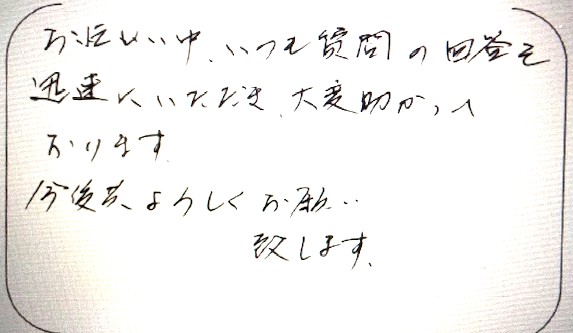 お忙しい中、いつも質問の回答を
迅速にいただき、大変助かって
おります。
今後共、よろしくお願い
致します。